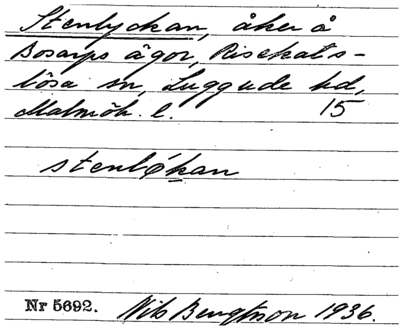 Stenlyckan, åker å
Bosarps ägor, Risekats-
lösa sn, Luggude hd,
Malmöh. l. 15
stenløkan
Nr 5692. Nils Bengtsson 1936.